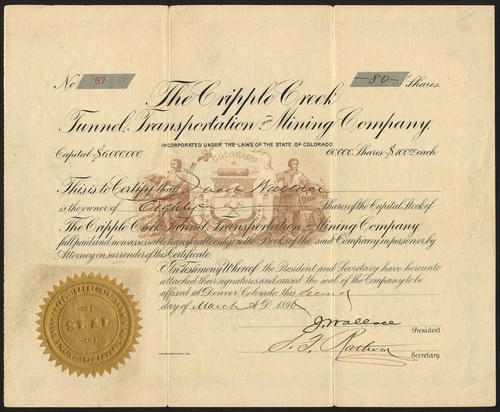 No 67 -80- Shares.
The Cripple Creek
Tunnel, Transportation and Mining Company,
INCORPORATED UNDER THE LAWS OF THE STATE OF COLORADO.
Capital $6,000,000 60000 Shares $100 each.
COLORADO
This is to Certify that Jacob Wallace
is the owner of Eighty Shares of the Capital Stock of
The Cripple Creek Tunnel, Transportation and Mining Company
full paid and nonassessable transferable only on the Books of the said Company in person or by
Attorney on surrender of this Certificate.
In Testimony Whereof the President and Secretary have hereunto
attached their signatures and caused the seal of the Company to be
affixed at Denver Colorado this Second
day of March A.D. 1896
J. Wallace President
Secretary
SEAL